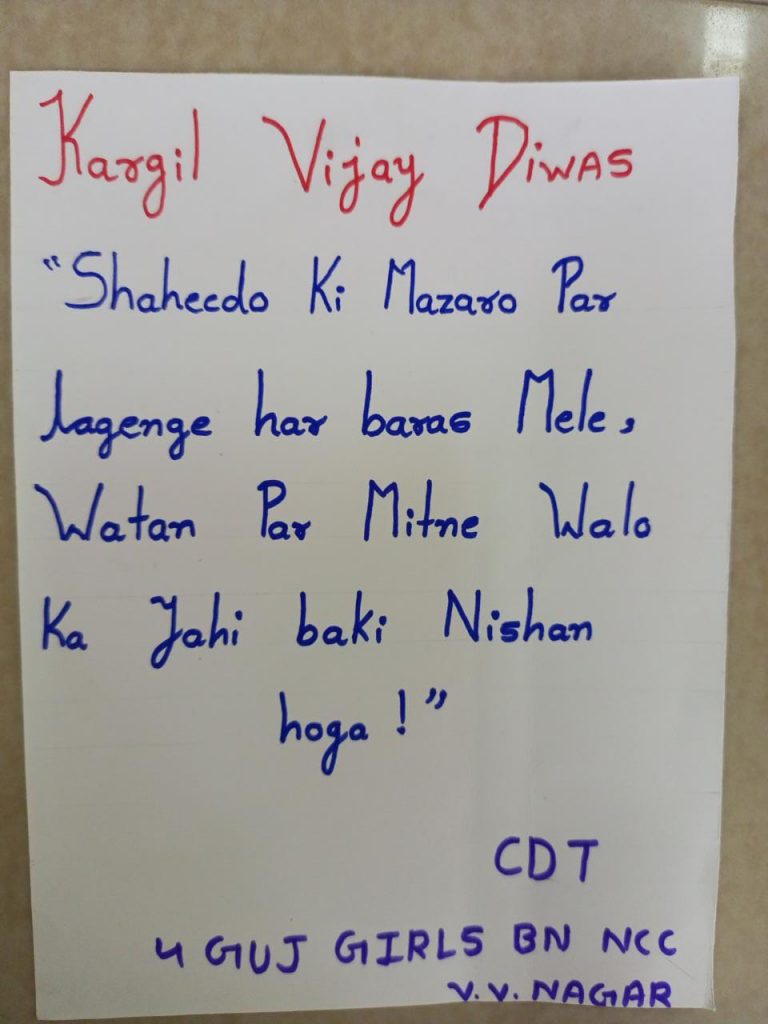 Kargil Vijay DIWAS
“Shaheedo Ki Mazaro Par
lagenge har baras Mele,
Watan Par Mitne Walo
Ka Yahi baki Nishan
hoga !”
CDT
4 GUJ GIRLS BN NCC
V.V. NAGAR